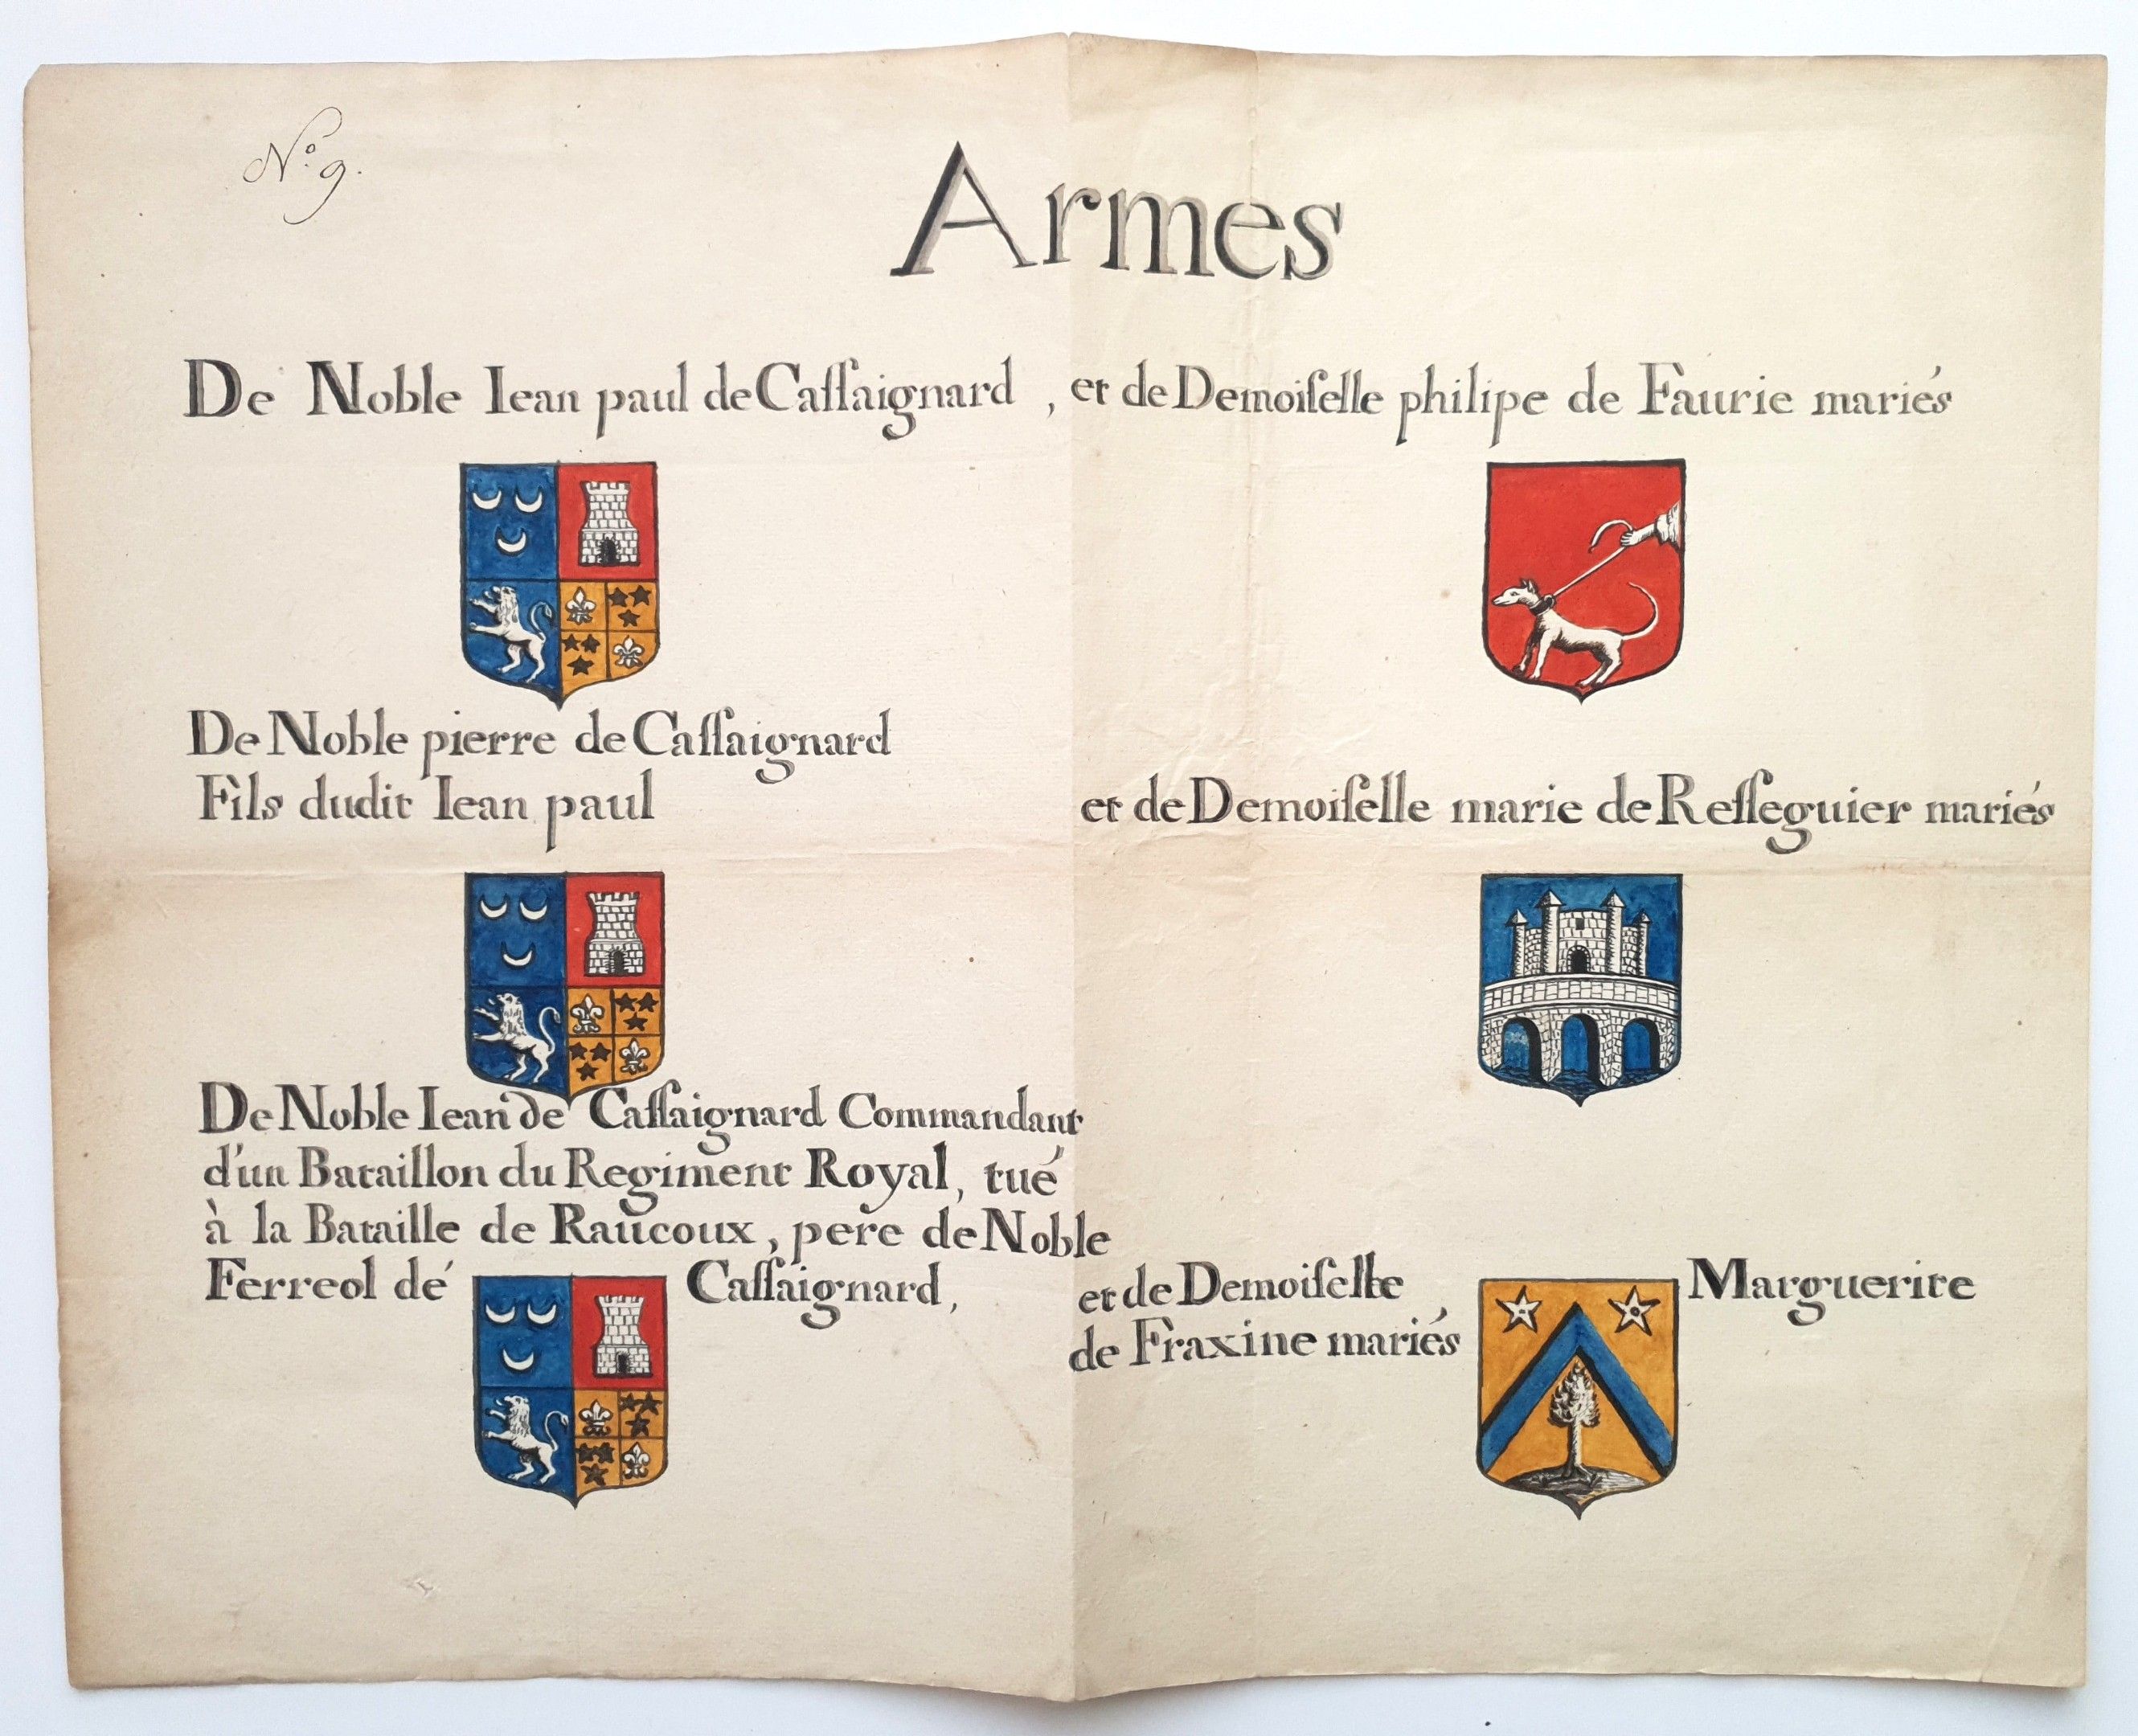 N.° 9.
Armes
De Noble Iean paul de Caſſaignard , et de Demoiſelle philipe de Faurie mariés
De Noble pierre de Caſſaignard
Fils dudit Iean paul
et de Demoiſelle marie de Reſſeguier mariés
De Noble Iean de Caſſaignard Commandant
d'un Bataillon du Regiment Royal, tué
à la Bataille de Raucoux, pere de Noble
Ferreol dé Caſſaignard,
et de Demoiſelle Marguerite
de Fraxine mariés